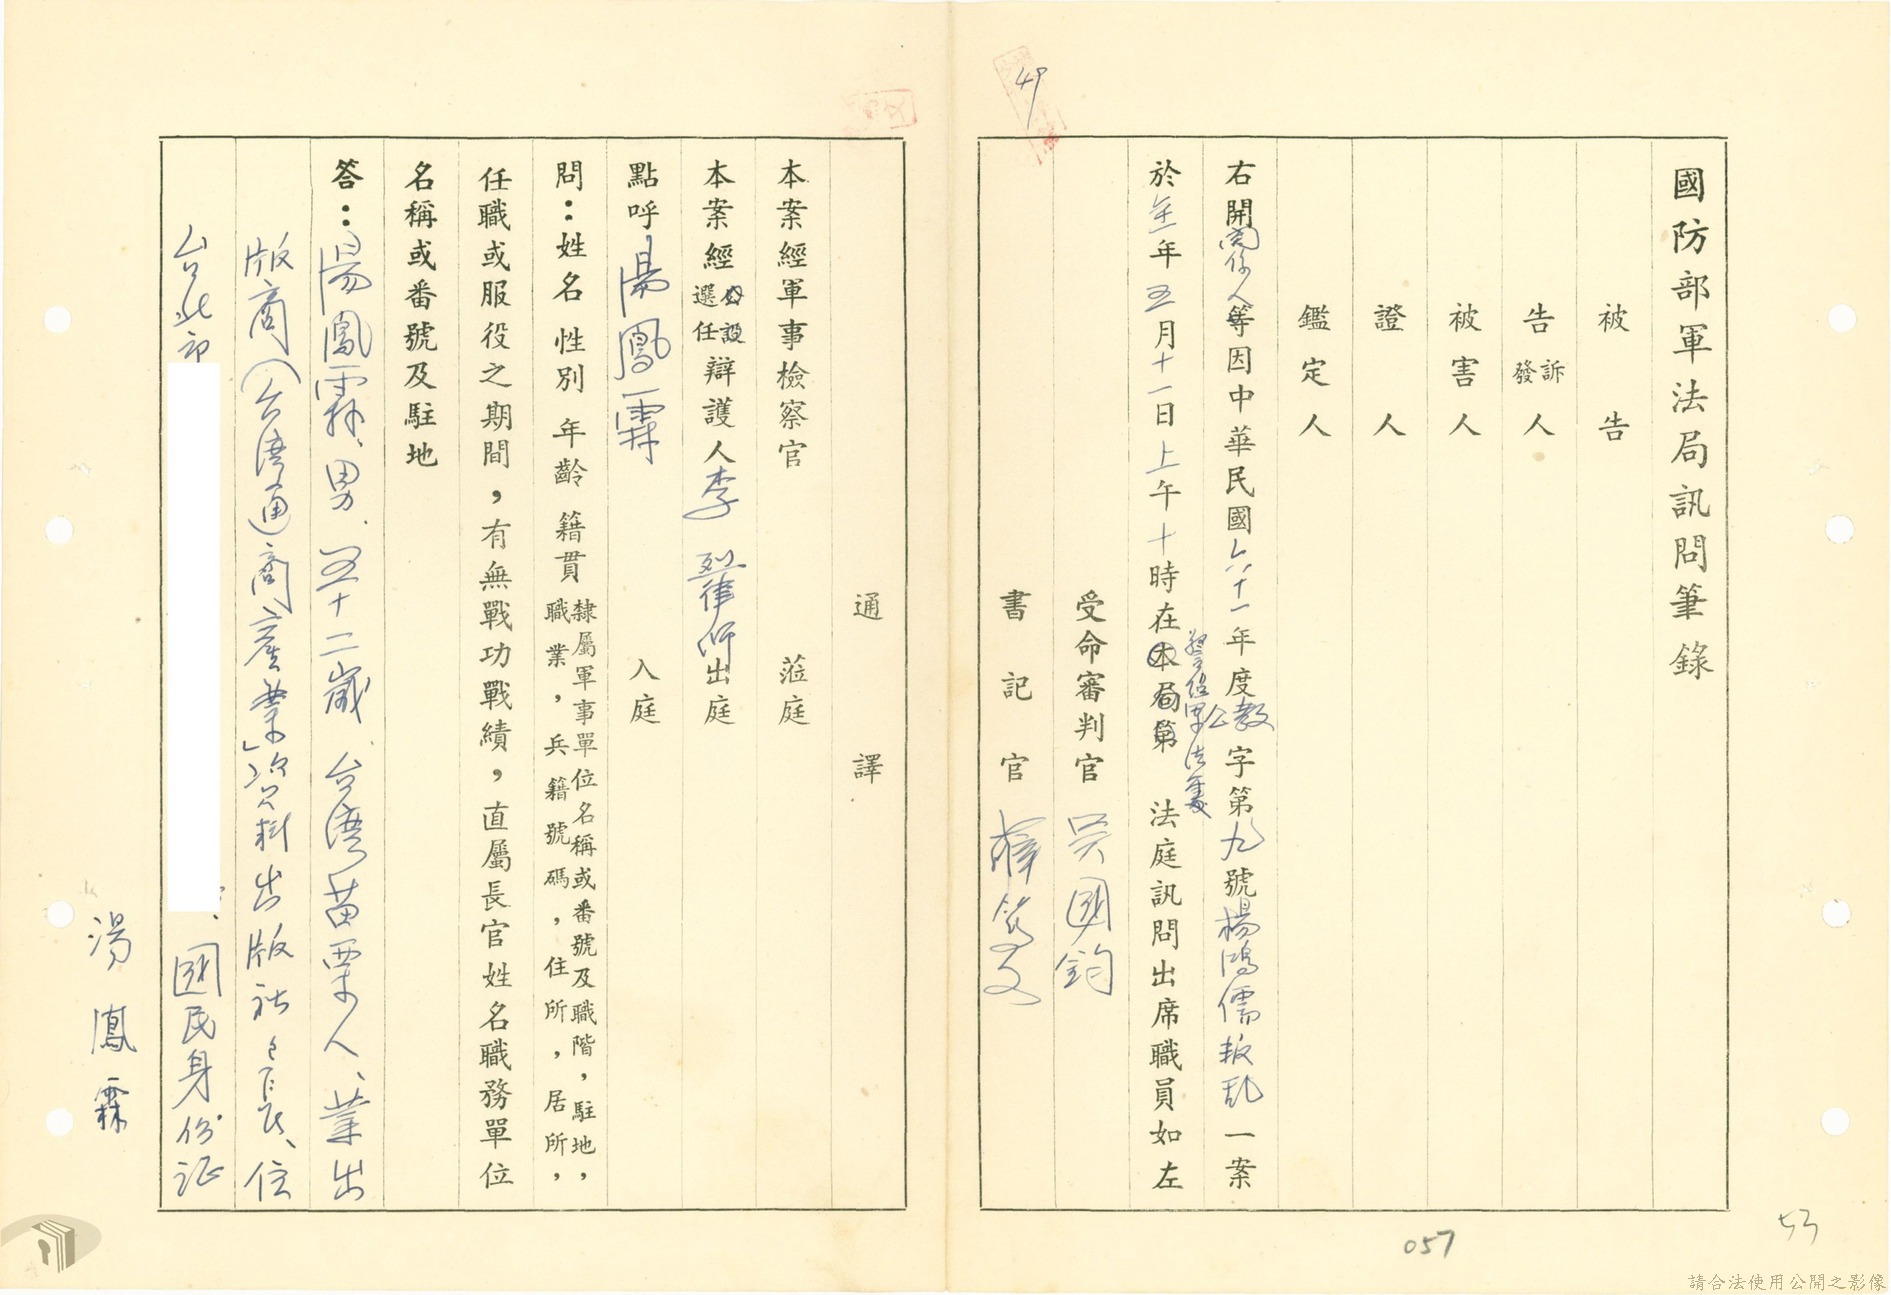 國防部軍法局訊問筆錄
被告
告訴發人
被害人
證人
鑑定人
右開關係人等因中華民國六十一年度公教字第九號楊鴻儒叛乱一案
於年五月十一日上午十時在本局第法庭訊問出席職員如左
受命審判官 吳國鈞
書記官
通譯
本案經軍事檢察官 蒞庭
本案經公設選任辯護人李 烈律师出庭
點呼湯鳳霖 入庭
問：姓名 性別 年齡 籍貫 隸屬軍事單位名稱或番號及職階，駐地，職業，兵籍號碼，住所，居所，
任職或服役之期間，有無戰功戰績，直屬長官姓名職務單位
名稱或番號及駐地
答：湯鳳霖、男、五十二歲、台湾苗栗人、業出
版商（台湾通商産業資料出版社社長、住
台北市
國民身份证
湯鳳霖
49
53
057
請合法使用公開之影像